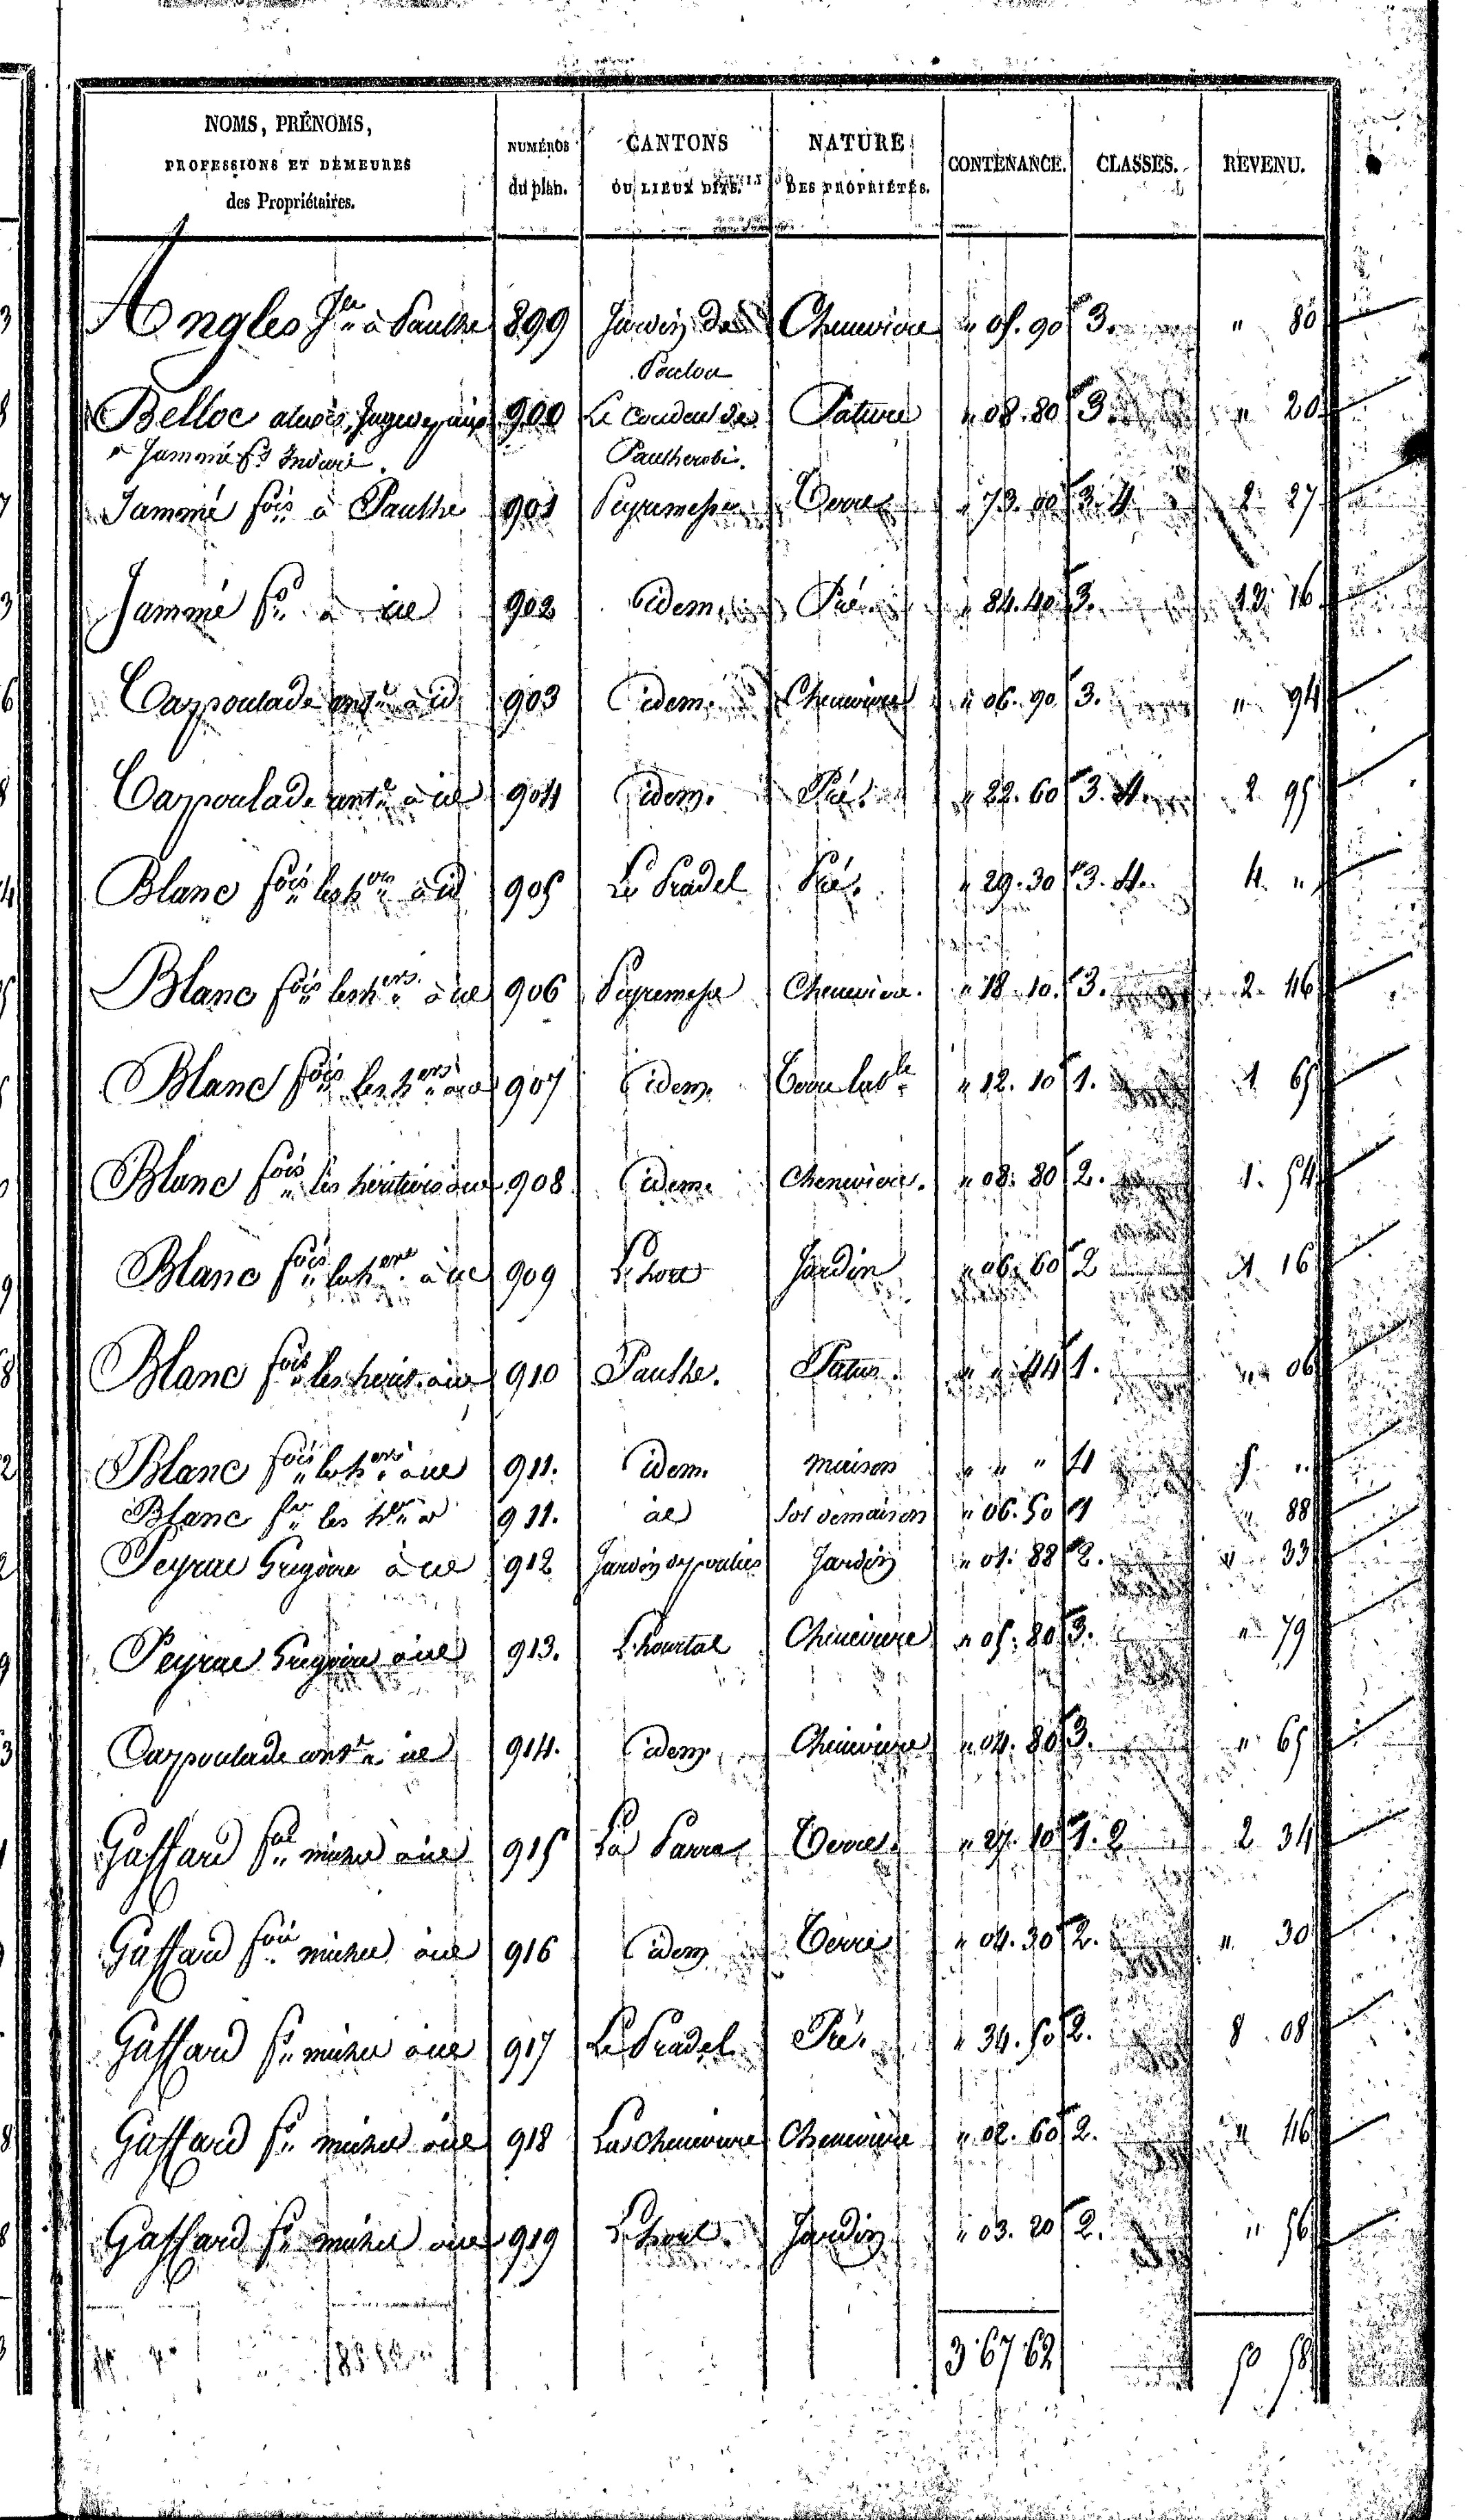 NOMS, PRÉNOMS, PROFESSIONS ET DEMEURES des Propriétaires. NUMÉROS du plan. CANTONS OU LIEUX DITS. NATURE DES PROPRIÉTÉS. CONTENANCE. CLASSES. REVENU.
Angles à Pauthe 899 Jardin de Chenevière " 05. 90 3. " 80
Poulou
Belloc 900 Le de Pature " 08. 80 3. " 20
Jammé
Jammé fois à Pauthe 901 Peyremesse Terre " 73. 00 3. 4 2 27
Jammé fs à id 902 idem. Pré. " 84. 40 3. 13 16
Carpoulade ant à id 903 idem. Chenevière " 06. 90 3. " 94
Carpoulade ant à id 904 idem. Pré. " 22. 60 3. 4. 2 95
Blanc fois les hers à id 905 Le Pradel Pré. " 29. 30 3. 4. 4. "
Blanc fois les hers à id 906 Peyremesse Chenevière. " 18. 10. 3. 2 46
Blanc fois les hers à id 907 idem. Terre lable " 12. 10 1. 1 65
Blanc fois les héritiers à id 908 idem. Chenevière. " 08. 80 2. 1. 54
Blanc fois les hers à id 909 L'hort Jardin " 06. 60 2 1 16
Blanc fois les hérit. à id 910 Pauthe. Patus. " " 44 1. " 06
Blanc fois les hers à id 911. idem. maison " " " 4 5. "
Blanc fs les hrs à 911. id Sol de maison " 06. 50 1 " 88
Peyrac Grégoire à id 912 Jardin Jardin " 01. 88 2. " 33
Peyrac Grégoire à id 913. L'hourtal Chenevière " 05. 80 3. " 79
Carpoulade ant à id 914. idem. Chenevière " 04. 80 3. " 65
Gaffard michel à id 915 La Parra Terre. " 27. 10 1. 2 2 34
Gaffard fois michel à id 916 idem Terre " 04. 30 2. " 30
Gaffard fs michel à id 917 Le Pradel Pré. " 34. 50 2. 8 08
Gaffard fs michel à id 918 La Chenevière Chenevière " 02. 60 2. " 46
Gaffard fs michel à id 919 L'hort. Jardin " 03. 20 2. " 56
3 67 62 50 58